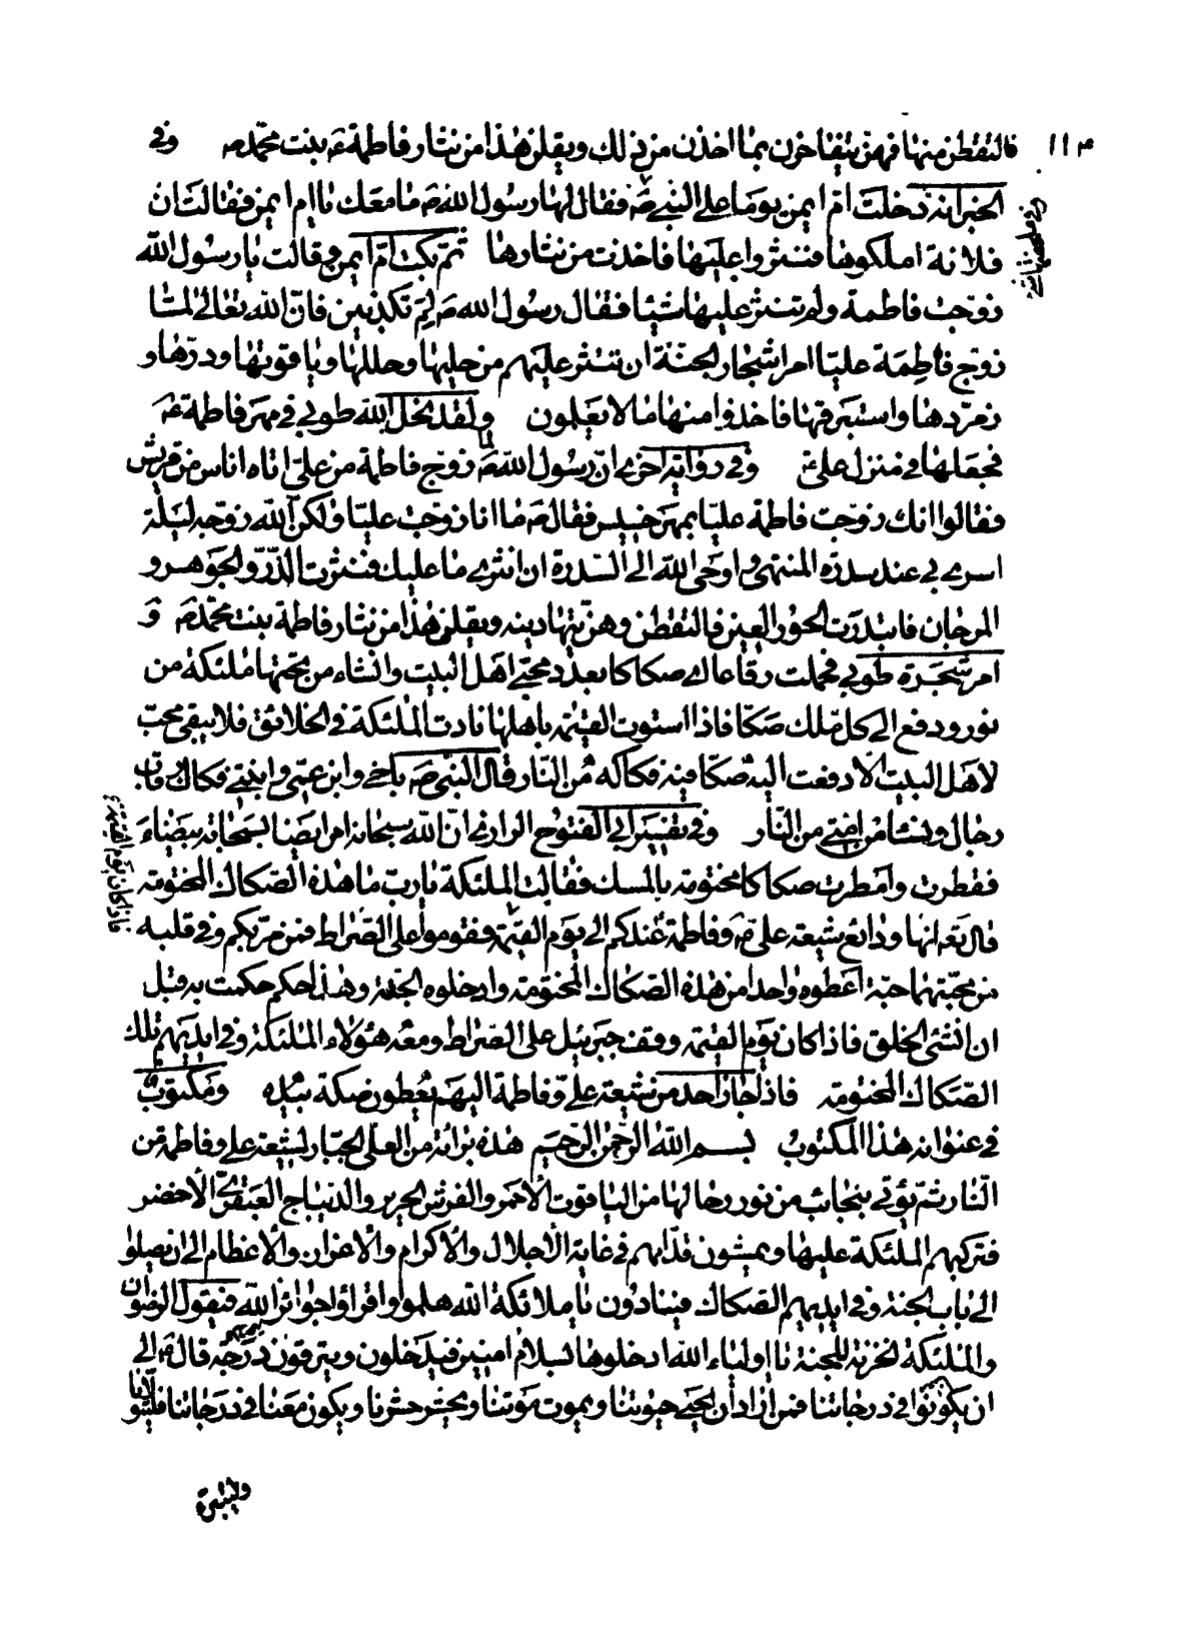 ١١٤
فالتقطن منها فهن يتفاخرن بما اخذن من ذلك ويقلن هذا من نثار فاطمة ع بنت محمد ص وفي
الخبر انه دخلت ام ايمن يوما على النبي ص فقال لها رسول الله ص ما معك يا ام ايمن فقالت ان
فلانة املكوها فنثروا عليها فاخذت من نثارها ثم بكت ام ايمن وقالت يا رسول الله
زوجت فاطمة ولم تنثر عليها شيئا فقال رسول الله ص لم تكذبين فان الله تعالى لما
زوج فاطمة عليا امر اشجار الجنة ان تنثر عليهم من حليها وحللها وياقوتها ودرها و
زمردها واستبرقها فاخذوا منها ما لا يعلمون ولقد نحل الله طوبى في مهر فاطمة ع
فجعلها في منزل علي ع وفي رواية اخرى ان رسول الله ص لما زوج فاطمة من علي اتاه اناس من قريش
فقالوا انك زوجت فاطمة عليا بمهر خسيس فقال ص ما انا زوجت عليا ولكن الله زوجه ليلة
اسرى بي عند سدرة المنتهى واوحى الله الى السدرة ان انثري ما عليك فنثرت الدر والجوهر و
المرجان فابتدرت الحور العين فالتقطن وهن يتهادينه ويقلن هذا من نثار فاطمة بنت محمد ص و
امر شجرة طوبى فحملت رقاعا اي صكاكا بعدد محبي اهل البيت وانشاء من تحتها ملئكة من
نور ودفع الى كل ملك صكا فاذا استوت القيمة باهلها نادت الملئكة في الخلائق فلا يبقى محب
لاهل البيت الا دفعت اليه صكا فيه فكاكه من النار قال النبي ص باخي وابن عمي وابنتي فكاك رقاب
رجال ونساء من امتي من النار وفي تفسير ابي الفتوح الرازي ان الله سبحانه امر ايضا لسحابة بيضاء
فقطرت وامطرت صكاكا مختومة بالمسك فقالت الملئكة يا رب ما هذه الصكاك المختومة
قال تع انها ودائع شيعة علي ع وفاطمة عندكم الى يوم القيمة فقوموا على الصراط فمن مر بكم وفي قلبه
من محبتهما حبة اعطوه واحدا من هذه الصكاك المختومة وادخلوه الجنة وهذا حكم حكمت به قبل
ان انشئ الخلق فاذا كان يوم القيمة وقف جبرئيل على الصراط ومعه هؤلاء الملئكة وفي ايديهم تلك
الصكاك المختومة فاذا جاز احد من شيعة علي وفاطمة اليهم يعطون صكه بيده ومكتوب
في عنوانه هذا المكتوب بسم الله الرحمن الرحيم هذه براءة من العلي الجبار لشيعة علي وفاطمة من
النار ثم يؤتى بنجائب من نور رحالها من الياقوت الاحمر والفرش الحرير والديباج العبقري الاخضر
فتركبهم الملئكة عليها ويمشون قدامهم في غاية الاجلال والاكرام والاعزاز والاعظام الى ان يصلوا
الى باب الجنة وفي ايديهم الصكاك فينادون يا ملائكة الله هلموا واقراؤا جوائز الله فيقول الرضوان
والملئكة الخزنة للجنة يا اولياء الله ادخلوها بسلام امنين فيدخلون ويترقون درجة قال ص الى
ان يكونوا في درجاتنا فمن اراد ان يحيي حيوتنا ويموت موتنا ويحشر حشرنا ويكون معنا في درجاتنا فليتولانا